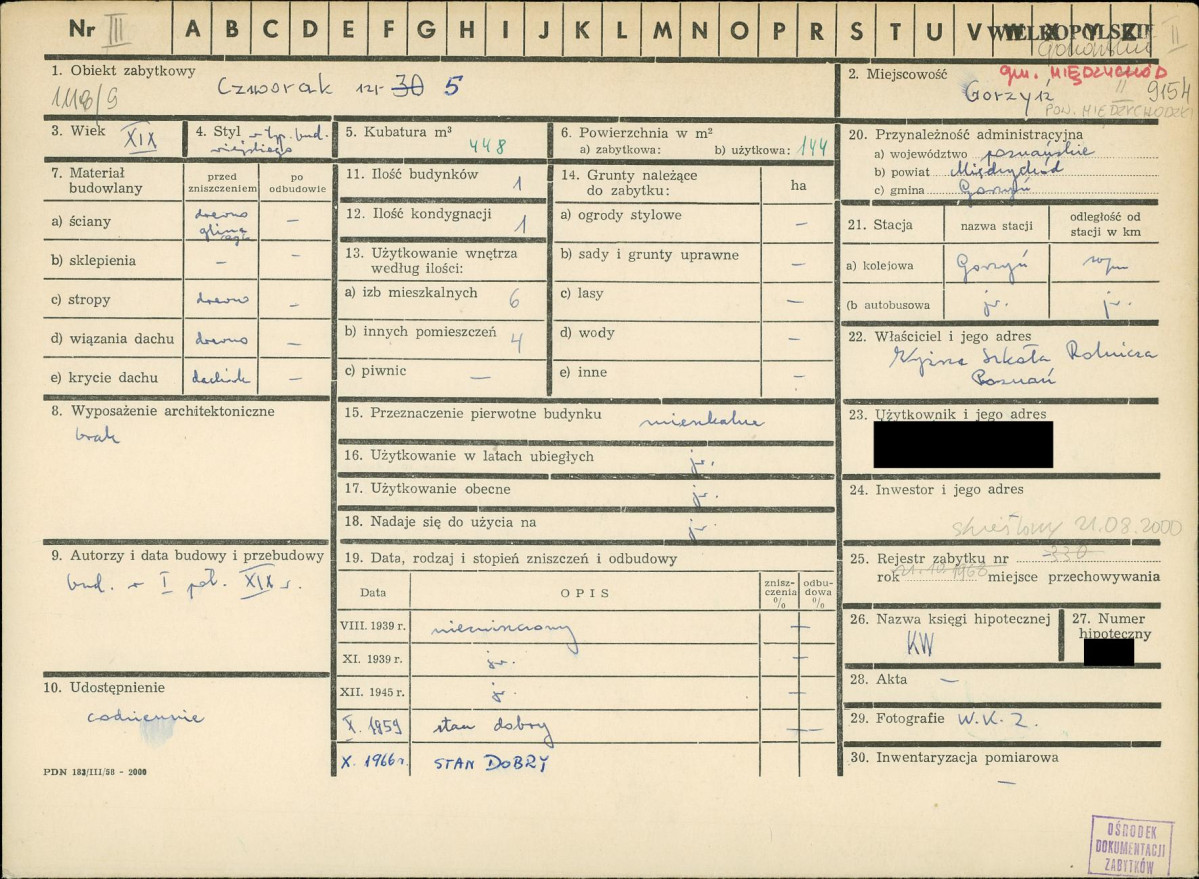 Nr III A B C D E F G H I J K L M N O P R S T U V W X Y Z
WIELKOPOLSKIE
II
1. Obiekt zabytkowy
Czworak nr 30 5
1118/9
2. Miejscowość
gm. MIĘDZYCHÓD
Gorzyń
II
9154
POW. MIĘDZYCHODZKI
3. Wiek XIX
4. Styl w typ. bud.
wiejskiego
5. Kubatura m³
448
6. Powierzchnia w m²
a) zabytkowa: b) użytkowa: 144
7. Materiał
budowlany
przed
zniszczeniem
po
odbudowie
a) ściany drewno –
glina
b) sklepienia – –
c) stropy drewno –
d) wiązania dachu drewno –
e) krycie dachu dachówk –
8. Wyposażenie architektoniczne
brak
9. Autorzy i data budowy i przebudowy
bud. w I poł. XIX w.
10. Udostępnienie
codziennie
PDN 183/III/58 - 2000
11. Ilość budynków 1
12. Ilość kondygnacji 1
13. Użytkowanie wnętrza
według ilości:
a) izb mieszkalnych 6
b) innych pomieszczeń 4
c) piwnic –
14. Grunty należące
do zabytku:
ha
a) ogrody stylowe –
b) sady i grunty uprawne –
c) lasy –
d) wody –
e) inne –
15. Przeznaczenie pierwotne budynku mieszkalne
16. Użytkowanie w latach ubiegłych jw.
17. Użytkowanie obecne jw.
18. Nadaje się do użycia na jw.
19. Data, rodzaj i stopień zniszczeń i odbudowy
Data
OPIS
znisz-
czenia
%
odbu-
dowa
%
VIII. 1939 r. niezniszczony –
XI. 1939 r. jw. –
XII. 1945 r. jw. –
X. 1959 stan dobry –
X. 1966 r. STAN DOBRY
20. Przynależność administracyjna
a) województwo poznańskie
b) powiat Międzychód
c) gmina Gorzyń
21. Stacja
nazwa stacji
odległość od
stacji w km
a) kolejowa Gorzyń
(b) autobusowa jw. jw.
22. Właściciel i jego adres
Wyższa Szkoła Rolnicza
Poznań
23. Użytkownik i jego adres
24. Inwestor i jego adres
skreślony 21.08.2000
25. Rejestr zabytku nr 330
rok 21.10.1968 miejsce przechowywania
26. Nazwa księgi hipotecznej
KW
27. Numer
hipoteczny
28. Akta –
29. Fotografie W.K.Z.
30. Inwentaryzacja pomiarowa
–
OŚRODEK
DOKUMENTACJI
ZABYTKÓW